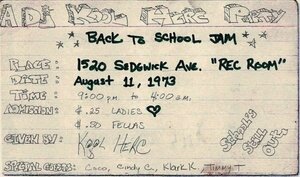 A DJ KOOL HERC PARTY
BACK TO SCHOOL JAM
PLACE: 1520 SEDGWICK AVE. "REC ROOM"
DATE: August 11, 1973
TIME: 9:00 pm to 4:00 am
ADMISSION: $.25 LADIES ♥
$.50 FELLAS
GIVEN BY: KOOL HERC
SPECIAL GUESTS: Coco, Cindy C., Klark K., Timmy T
School's Still Out!